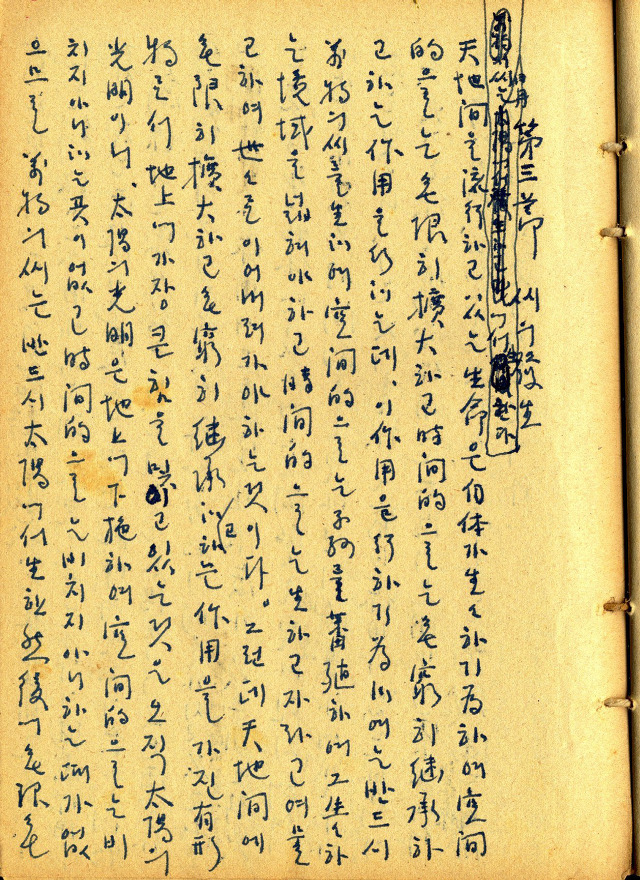 第三節 씨의 發生
天地間을 流行하고 있는 生命은 自体가 生生하기 爲하여 空間
的으로는 無限히 擴大하고 時間的으로는 無窮히 継承하
고 하는 作用을 行하는데, 이 作用을 行하기 爲하여는 반드시
萬物의 씨를 生하여 空間的으로는 子孫을 蕃殖하여 그 生生하
는 境域을 넓혀야 하고 時間的으로는 生하고 자라고 여물
고 하여 世世로 이어 내려가야 하는 것이다。 그런데 天地間에
無限히 擴大하고 無窮히 継承하고 하는 作用을 가진 有形
物로서 地上에 가장 큰 힘을 주고 있는 것은 오직 太陽의
光明이니, 太陽의 光明은 地上에 下施하여 空間的으로는 비
치지 아니하는 곳이 없고 時間的으로는 비치지 아니하는 때가 없
으므로 萬物의 씨는 반드시 太陽에서 生한 然後에 無限無